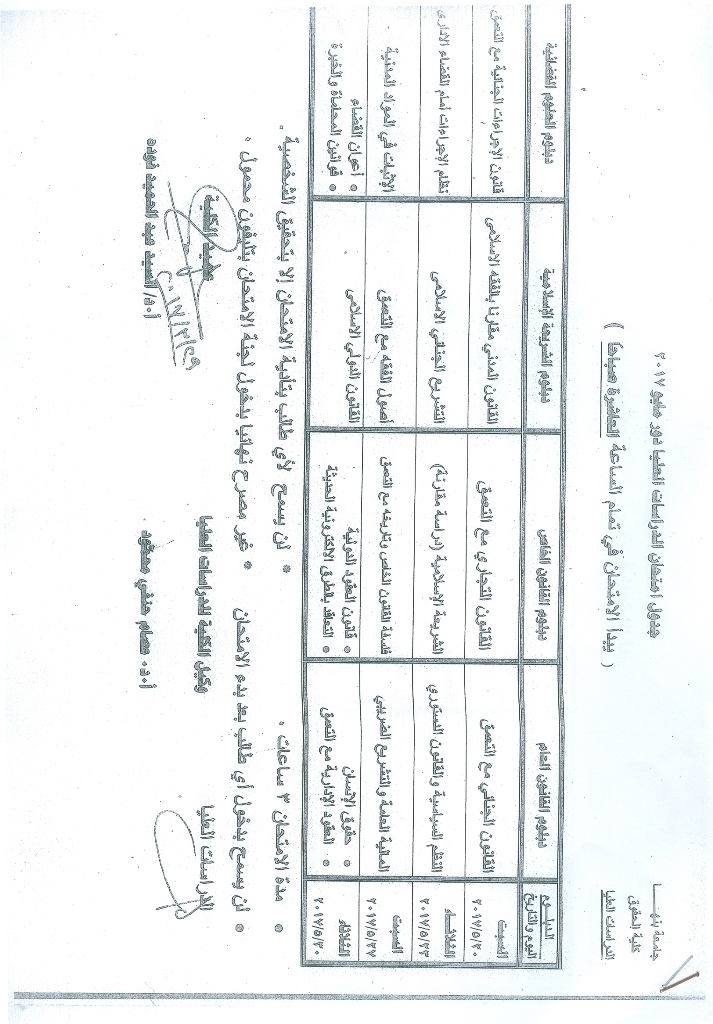 جامعة بنهـــا
كلية الحقوق
الدراسات العليا
جدول امتحان الدراسات العليا دور مايو ٢٠١٧
( يبدأ الامتحان في تمام الساعة العاشرة صباحا )
الدبلــوم
اليوم والتاريخ
دبلوم القانون العام
دبلوم القانون الخاص
دبلوم الشريعة الإسلامية
دبلوم العلوم القضائية
السبت
٢٠١٧/٥/٢٠
القانون الجنائي مع التعمق
القانون التجاري مع التعمق
القانون المدني مقارنا بالفقه الاسلامى
قانون الاجراءات الجنائية مع التعمق
الثلاثــاء
٢٠١٧/٥/٢٣
النظم السياسية والقانون الدستوري
الشريعة الإسلامية (دراسة مقارنة)
التشريع الجنائي الاسلامى
نظم الاجراءات أمام القضاء الادارى
السبت
٢٠١٧/٥/٢٧
المالية العامة والتشريع الضريبي
فلسفة القانون الخاص وتاريخه مع التعمق
أصول الفقه مع التعمق
الإثبات في المواد المدنية
الثلاثاء
٢٠١٧/٥/٣٠
* حقوق الإنسان
* العقود الإدارية مع التعمق
* قانون العقود الدولية
* التعاقد بالطرق الالكترونية الحديثة
القانون الدولي الاسلامى
* أعوان القضاء
* قوانين المحاماة والخبرة
* مدة الامتحان ٣ ساعات .
* لن يسمح لأي طالب بتأدية الامتحان إلا بتحقيق الشخصية .
* لن يسمح بدخول أي طالب بعد بدء الامتحان
* غير مصرح نهائيا بدخول لجنة الامتحان بتليفون محمول .
الدراسات العليا
وكيل الكلية للدراسات العليا
عميد الكلية
أ.د. عصام حنفي محمود
أ.د/ السيد عبد الحميد فوده